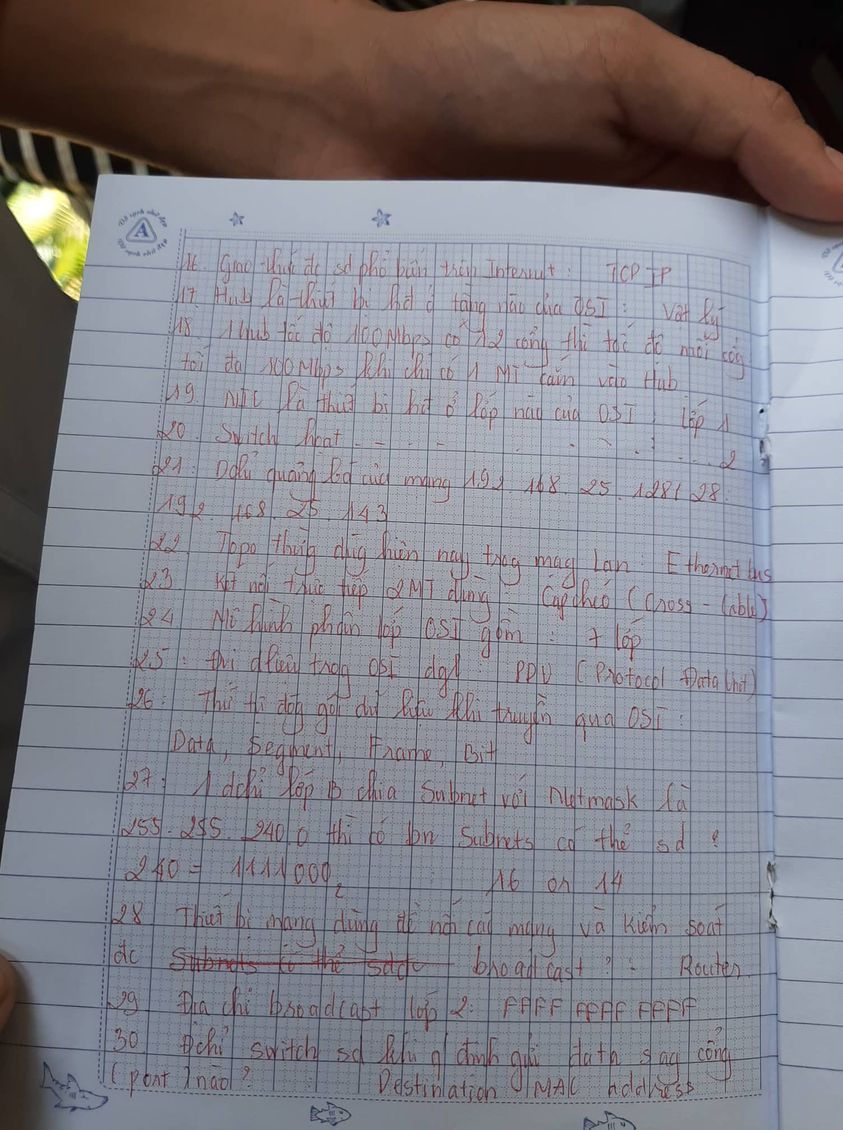 16. Giao thức đc sd phổ biến trên Internet: TCP IP
17. Hub là thiết bị hđ ở tầng nào của OSI: Vật lý
18. 1 Hub tốc độ 100Mbps có 12 cổng thì tốc độ mỗi cổg
tối đa 100Mbps khi chỉ có 1 MT cắm vào Hub
19. NIC là thiết bị hđ ở lớp nào của OSI: lớp 1
20. Switch hoạt - - - . . . . . . . 2
21: Dchỉ quảng bá của mạng 192.168.25.128/28:
192.168.25.143
22. Topo thườg dùg hiện nay trog mạg Lan: Ethernet bus
23 Kết nối trực tiếp 2MT dùng: Cáp chéo (Cross-Cable)
24 Mô hình phân lớp OSI gồm: 7 lớp
25: Đvi dliệu trog OSI dgl: PDU (Protocol Data Unit)
26: Thứ tự đóg gói dữ liệu khi truyền qua OSI:
Data, Segment, Frame, Bit
27: 1 dchỉ lớp B chia Subnet với Netmask là
255.255.240.0 thì có bn Subnets có thể sd?
240 = 1111000₂ 16 or 14
28 Thiết bị mạng dùng để nối các mạng và kiểm soát
đc broadcast?: Router
29 Địa chỉ broadcast lớp 2: FFFF FFFF FFFF
30 Dchỉ switch sd khi qđịnh gửi data sag cổng
(port) nào? Destination MAC address